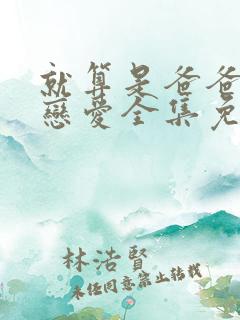 就算是爸爸
戀愛全集免
林浩賢
未經同意禁止轉載